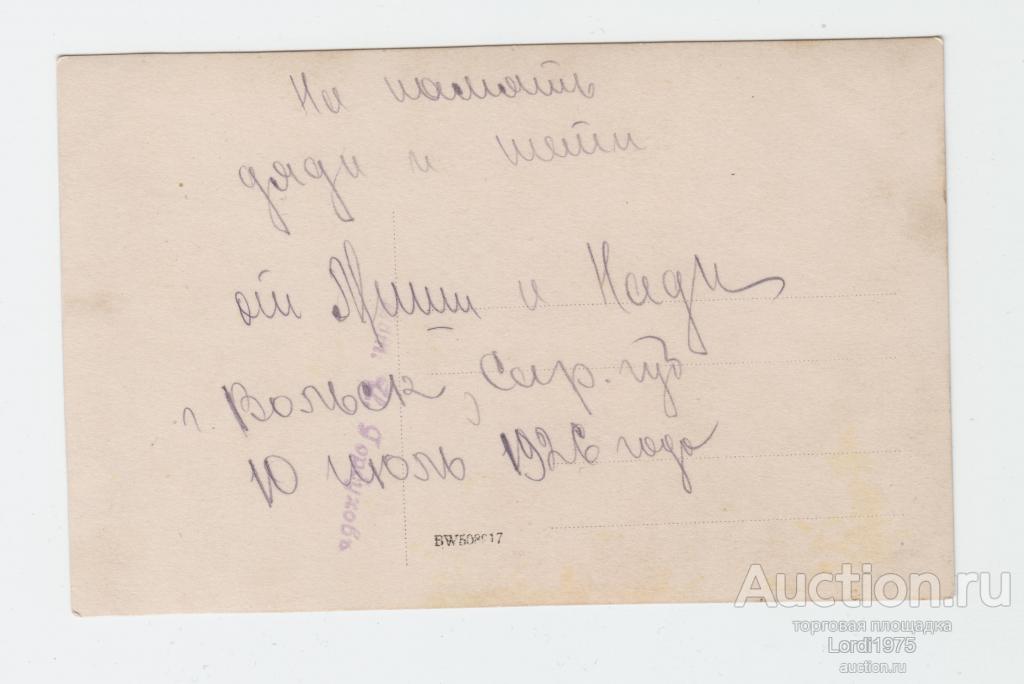 На память
дяди и тети
от Миши и Нади
г. Вольск, Сар. губ
10 июль 1926 года
BW508917
Auction.ru
торговая площадка
Lordi1975
auction.ru